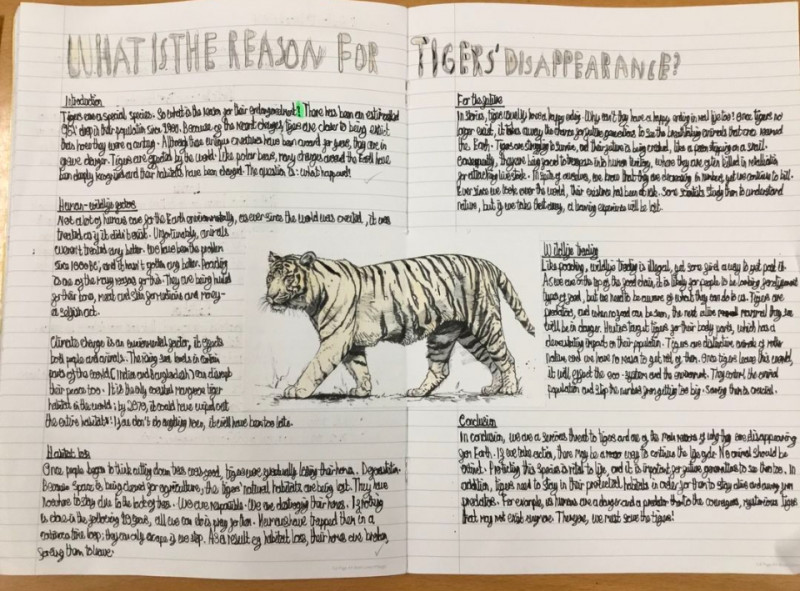 WHAT IS THE REASON FOR TIGERS' DISAPPEARANCE?
Introduction
Tigers are a special species. So what is the reason for their endangerment? There has been an estimated
95% drop in their population since 1900. Because of the recent changes, tigers are closer to being extinct
than how they were a century. Although these unique creatures have been around for years, they are in
grave danger. Tigers are by the world. Like polar bears, many changes around the Earth have
been deeply recognised and their habitats have been changed. The question is: what happened?
Human-wildlife
Not a lot of humans care for the Earth environmentally, as ever since the world was created, it was
treated as if it didn't exist. Unfortunately, animals
weren't treated any better. We have been the problem
since and it hasn't gotten any better. Poaching
is one of the many reasons for this. They are being hunted
for their bone, meat and skin for and money-
a selfish act.
Climate change is an environmental factor, it effects
both people and animals. The rising sea levels in certain
parts of the world (India and Bangladesh) can disrupt
their peace too. It is the only coastal mangrove tiger
habitat in the world; by 2070, it could have wiped out
the entire habitats! If you don't do anything now, it will have been too late.
Habitat loss
Once people began to think cutting down trees was good, tigers were gradually losing their homes. Deforestation.
Because space is being cleared for agriculture, the tigers' natural habitats are being lost. They have
nowhere to stay due to the lack of trees. We are responsible. We are destroying their homes. If nothing
is done in the following years, all we can do is pray for them. Humans have trapped them in a
continuous time loop; they can only escape if we stop. As a result of habitat loss, their homes are broken,
forcing them to leave.
For the future
In stories, tigers usually have a happy ending. Why can't they have a happy ending in real life too? Once tigers no
longer exist, it takes away the chance for future generations to see the breathtaking animals that once roamed
the Earth. Tigers are struggling to survive, and their future is being crushed, like a person stepping on a snail.
Consequently, they are being forced to trespass into human territory, where they are often killed in retaliation
for attacking livestock. In spite of ourselves, we know that they are decreasing in numbers, yet we continue to kill.
Ever since we took over the world, their existence has been at risk. Some scientists study them to understand
nature, but if we take that away, a learning experience will be lost.
Wildlife trading
Like poaching, wildlife trading is illegal, yet some find a way to get past it.
As we are on the top of the food chain, it is likely for people to be looking for different
types of food, but we need to be aware of what they can do to us. Tigers are
predators, and when no food can be seen, the next alive mammal they see
will be in danger. Hunters target tigers for their body parts, which has a
devastating impact on their population. Tigers are distinctive animals of
nature, and we have no reason to get rid of them. Once tigers leave this world,
it will effect the eco-system and the environment. They control the animal
population and stop the numbers from getting too big. Saving them is crucial.
Conclusion
In conclusion, we are a serious threat to tigers and one of the main reasons of why they are disappearing
from Earth. If we take action, there may be a more way to continue the life cycle. No animal should be
extinct. Protecting this species is vital to life, and it is important for future generations to see them too. In
addition, tigers need to stay in their protected habitats in order for them to stay alive and away from
predators. For example, us humans are a danger and a predator to the courageous, mysterious tigers
that may not exist anymore. Therefore, we must save the tigers!